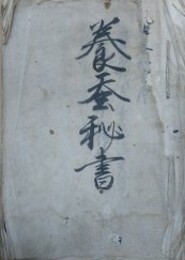 養蚕秘書